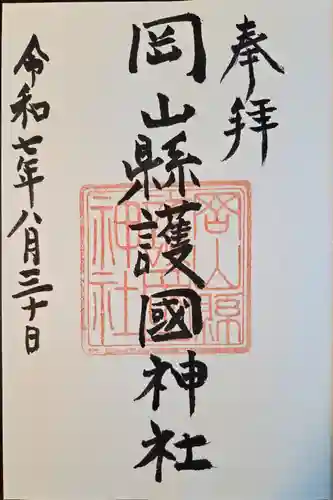 奉拝
岡山縣護國神社
令和七年八月三十日
岡山縣
護國
神社